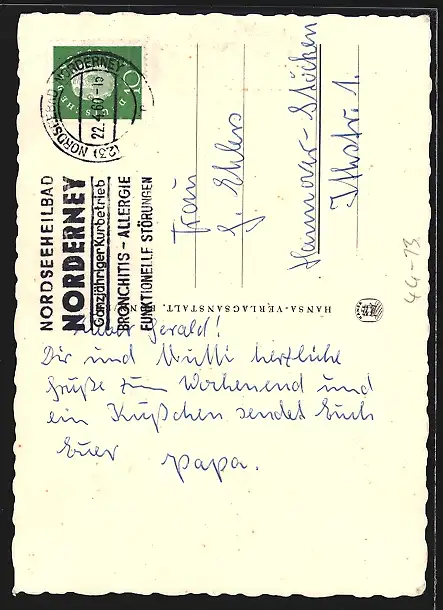 (23) NORDSEEBAD NORDERNEY
22.
10
NORDSEEHEILBAD
NORDERNEY
Ganzjähriger Kurbetrieb
BRONCHITIS - ALLERGIE
FUNKTIONELLE STÖRUNGEN
Frau
G. Ehlers
Hannover-Stöcken
HANSA-VERLAGSANSTALT,
44-13
Lieber Gerald!
Dir und Mutti herzliche
Grüße zum Wochenend und
ein Küßchen sendet Euch
Euer Papa.